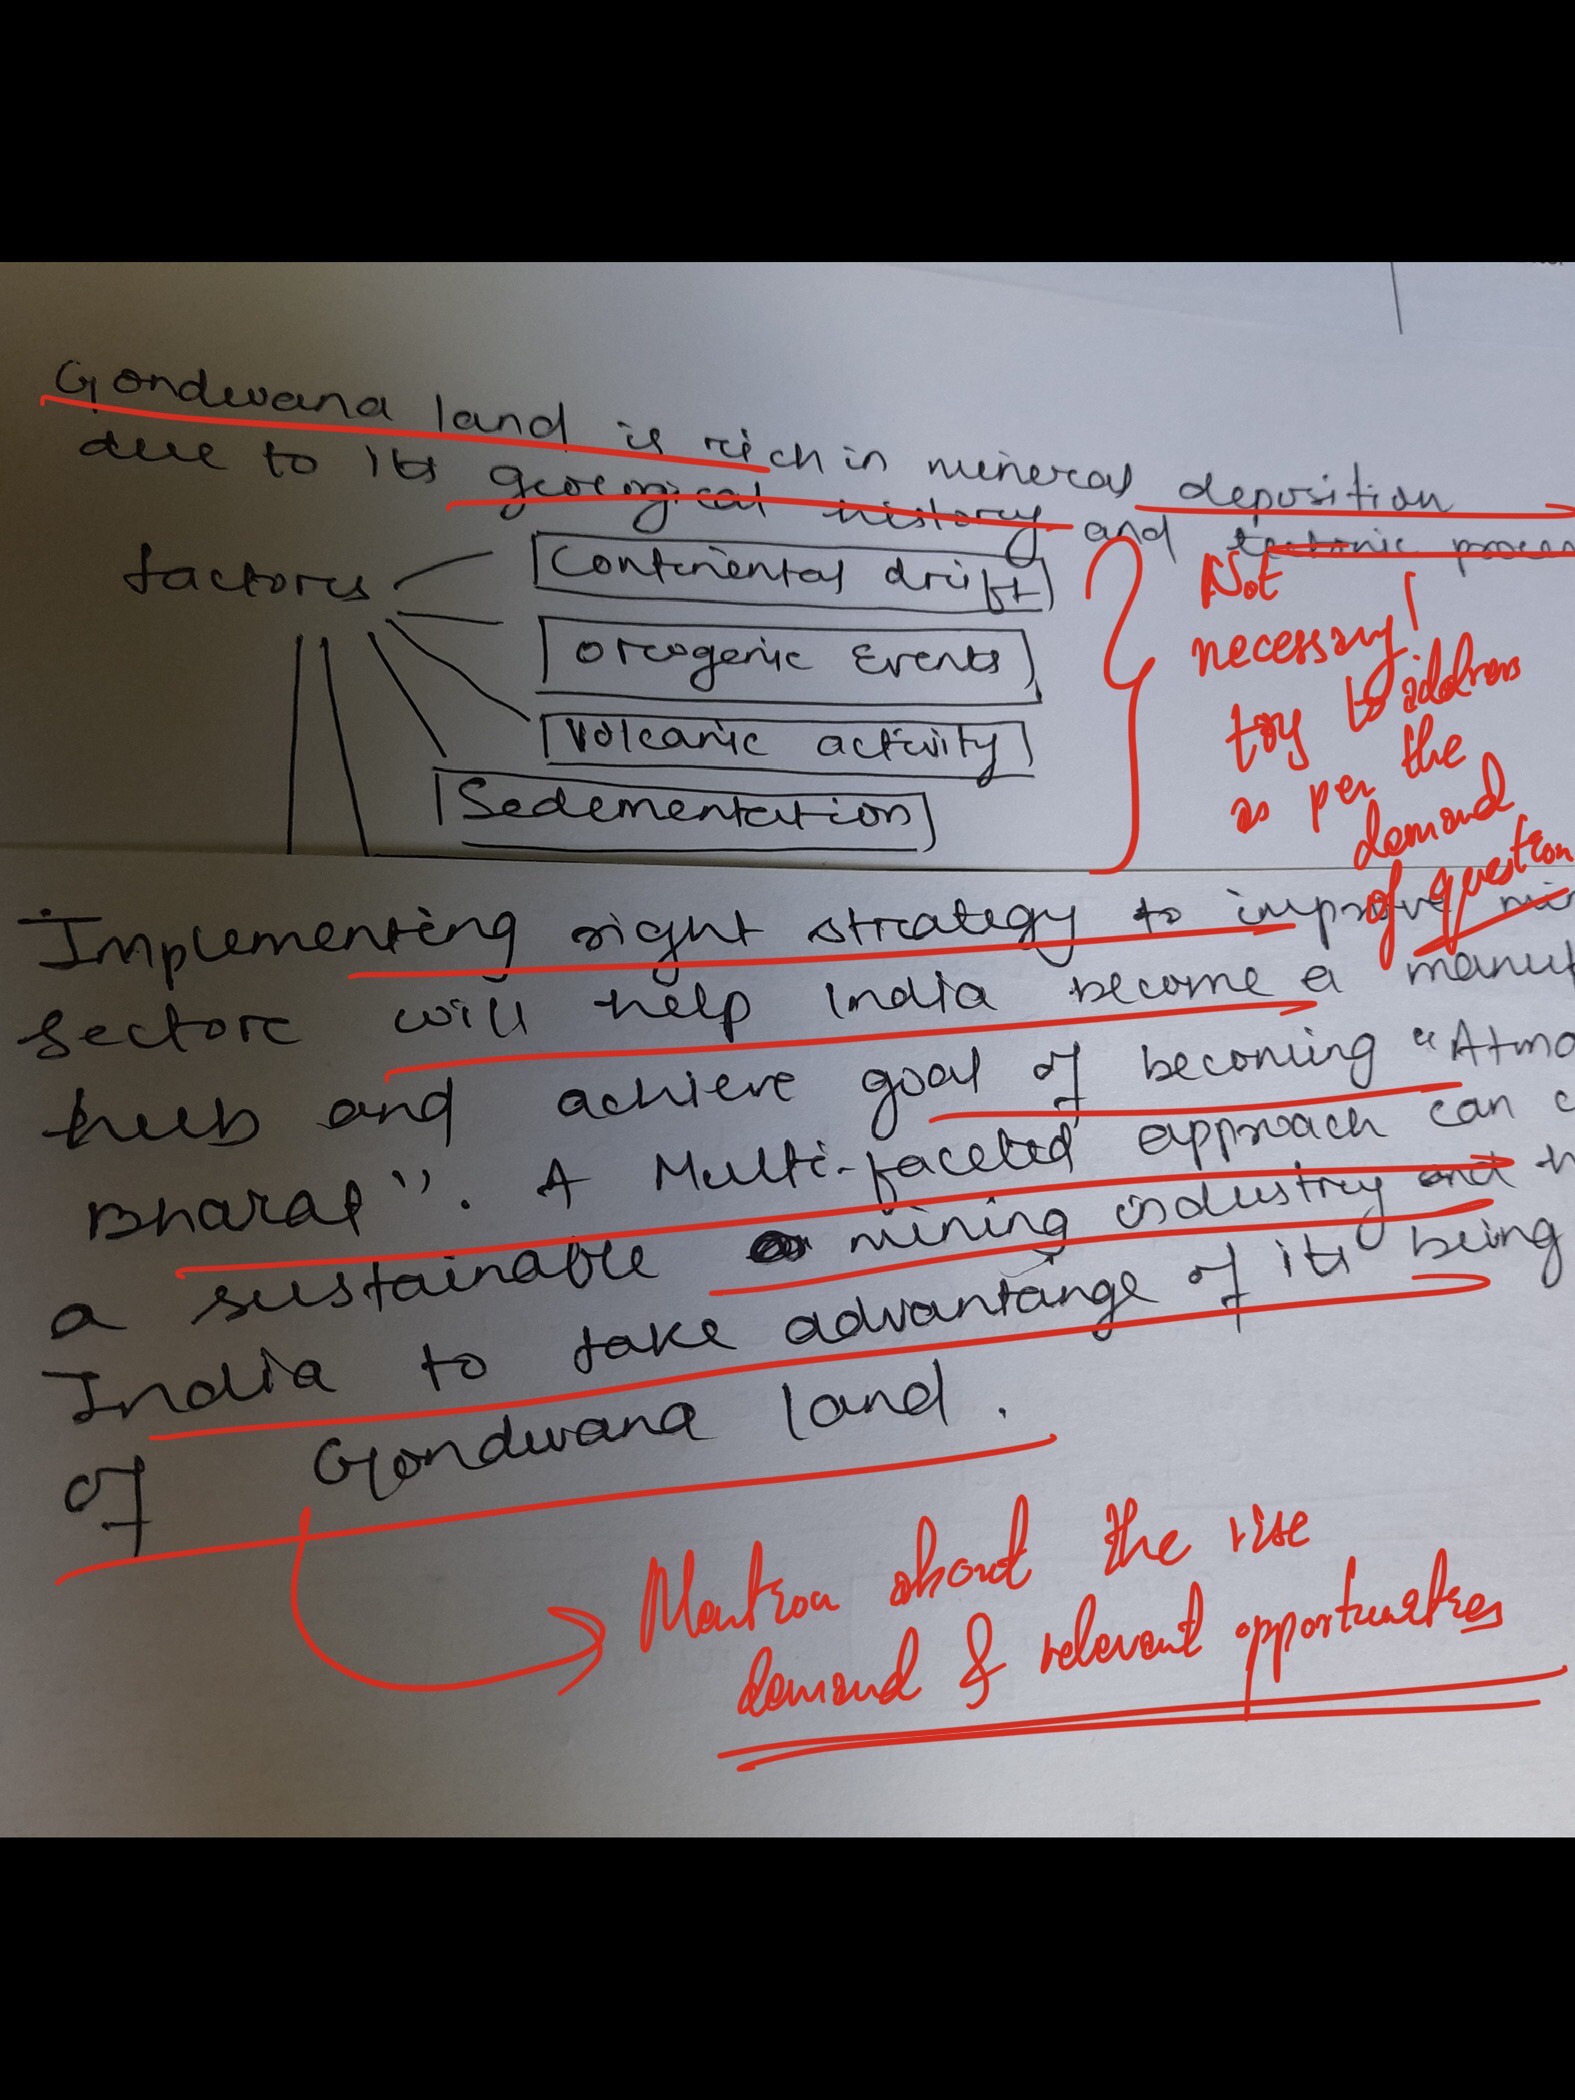 Gondwana land is rich in mineral deposition
due to its geological history and tectonic proces
factors
Continental drift
Orogenic Events
Volcanic activity
Sedementation
Not
necessary!
try to address
as per the
demand
of question
Implementing right strategy to improve min
sector will help India become a manuf
hub and achieve goal of becoming "Atma
Bharat". A Multi-faceted approach can c
a sustainable mining industry and h
India to take advantange of its being
of Gondwana land.
Mention about the rise
demand & relevant opportunities